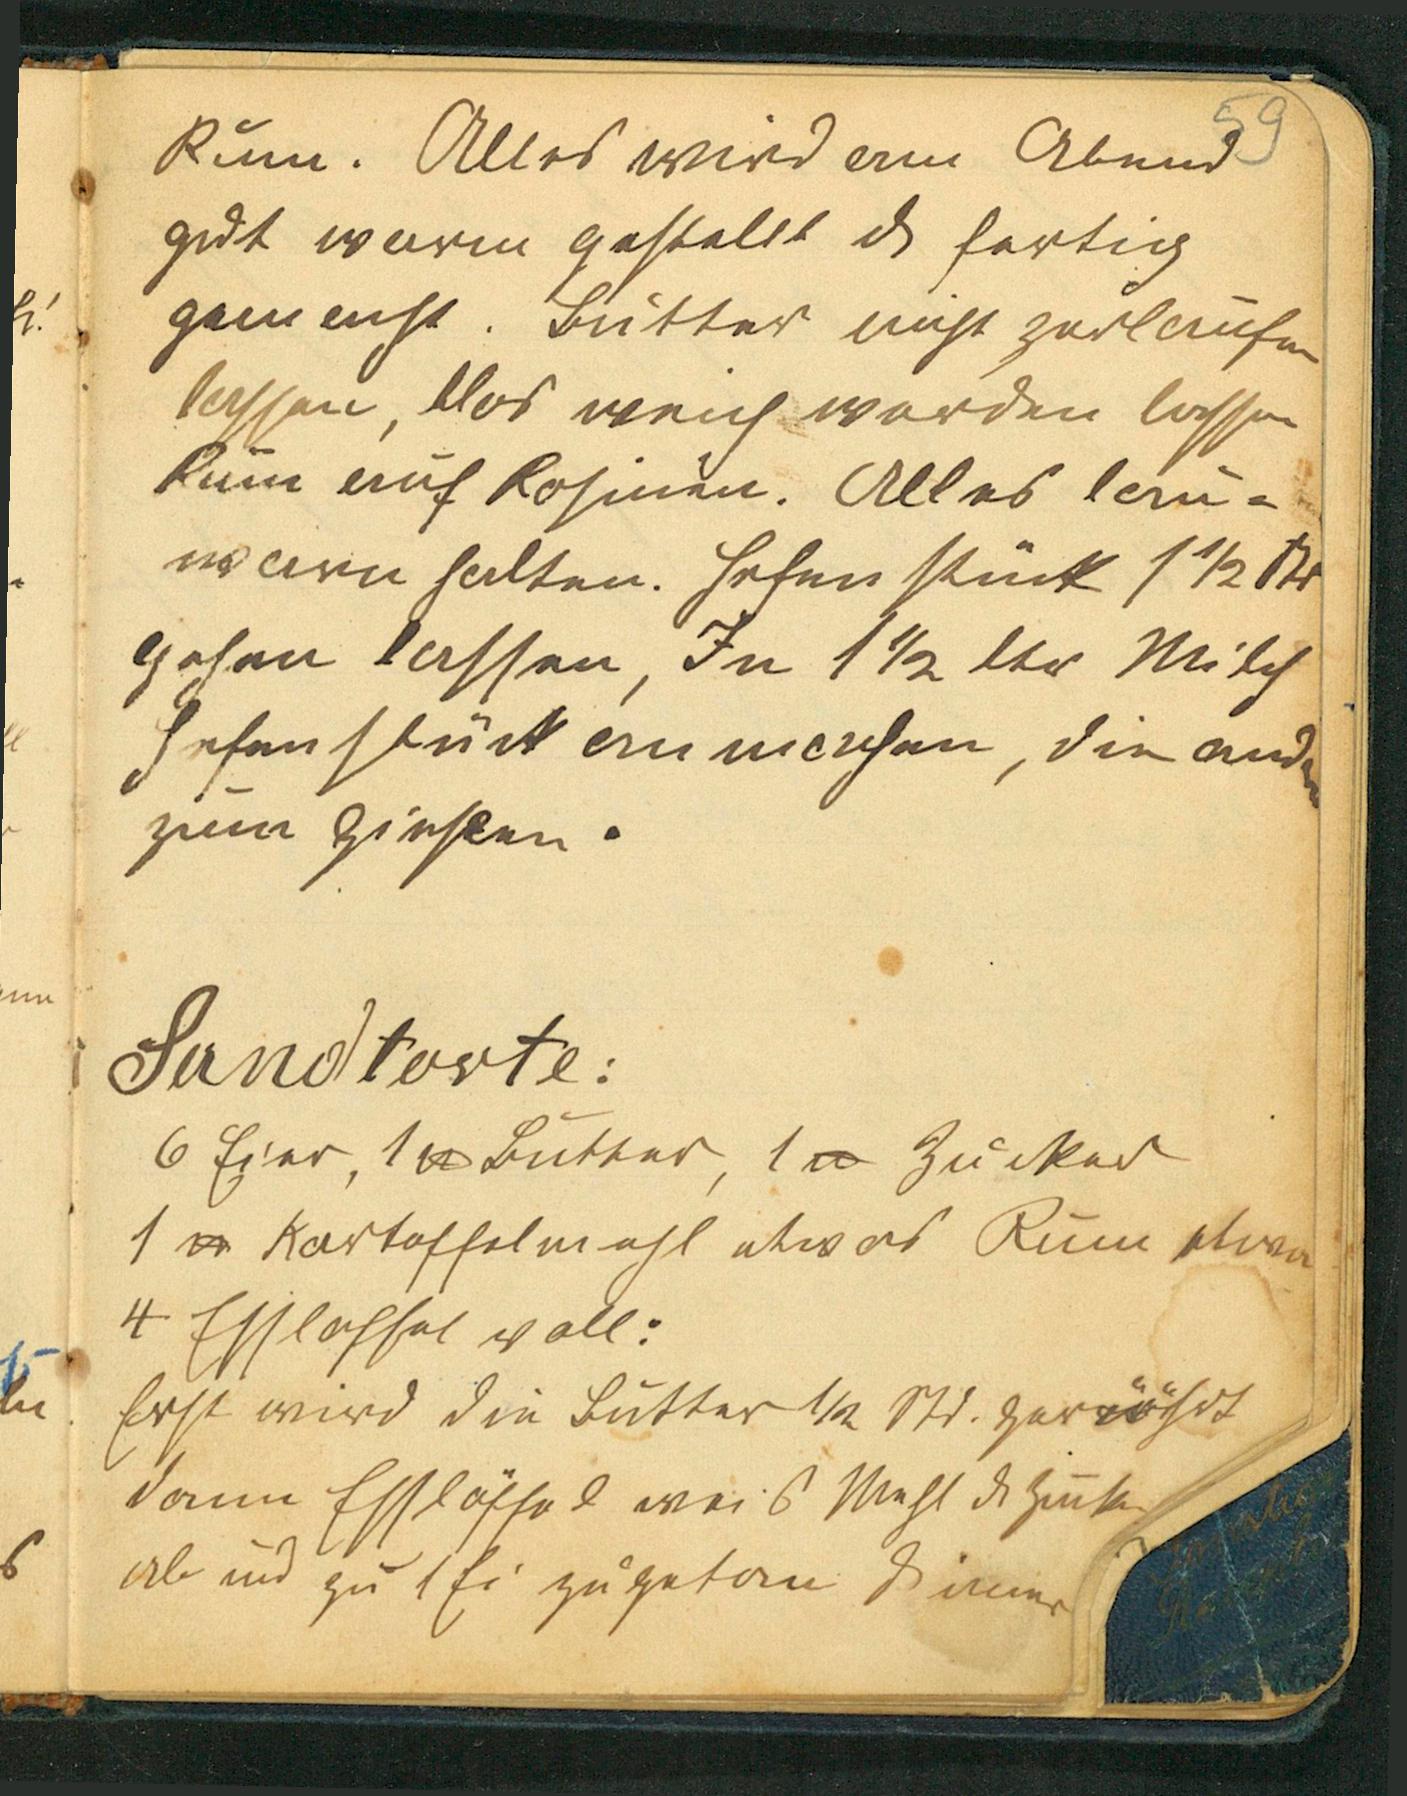 59
Rum. Alles wird am Abend
gut warm gestellt & fertig
gemacht. Butter nicht zerlaufen
lassen, blos weich werden lassen
Rum auf Rosinen. Alles lau-
warm halten. Hefenstück 1 1/2 Std
gehen lassen, In 1 1/2 ltr Milch
Hefenstück anmachen, die andere
zum
Sandtorte:
6 Eier, 1 ℔ Butter, 1 ℔ Zucker
1 ℔ Kartoffelmehl etwas Rum etwa
4 Essloffel voll:
Erst wird die Butter 1/2 Std. gerührt
dann Esslöffel weis Mehl & Zucker
ab und zu 1 Ei zugetan & immer